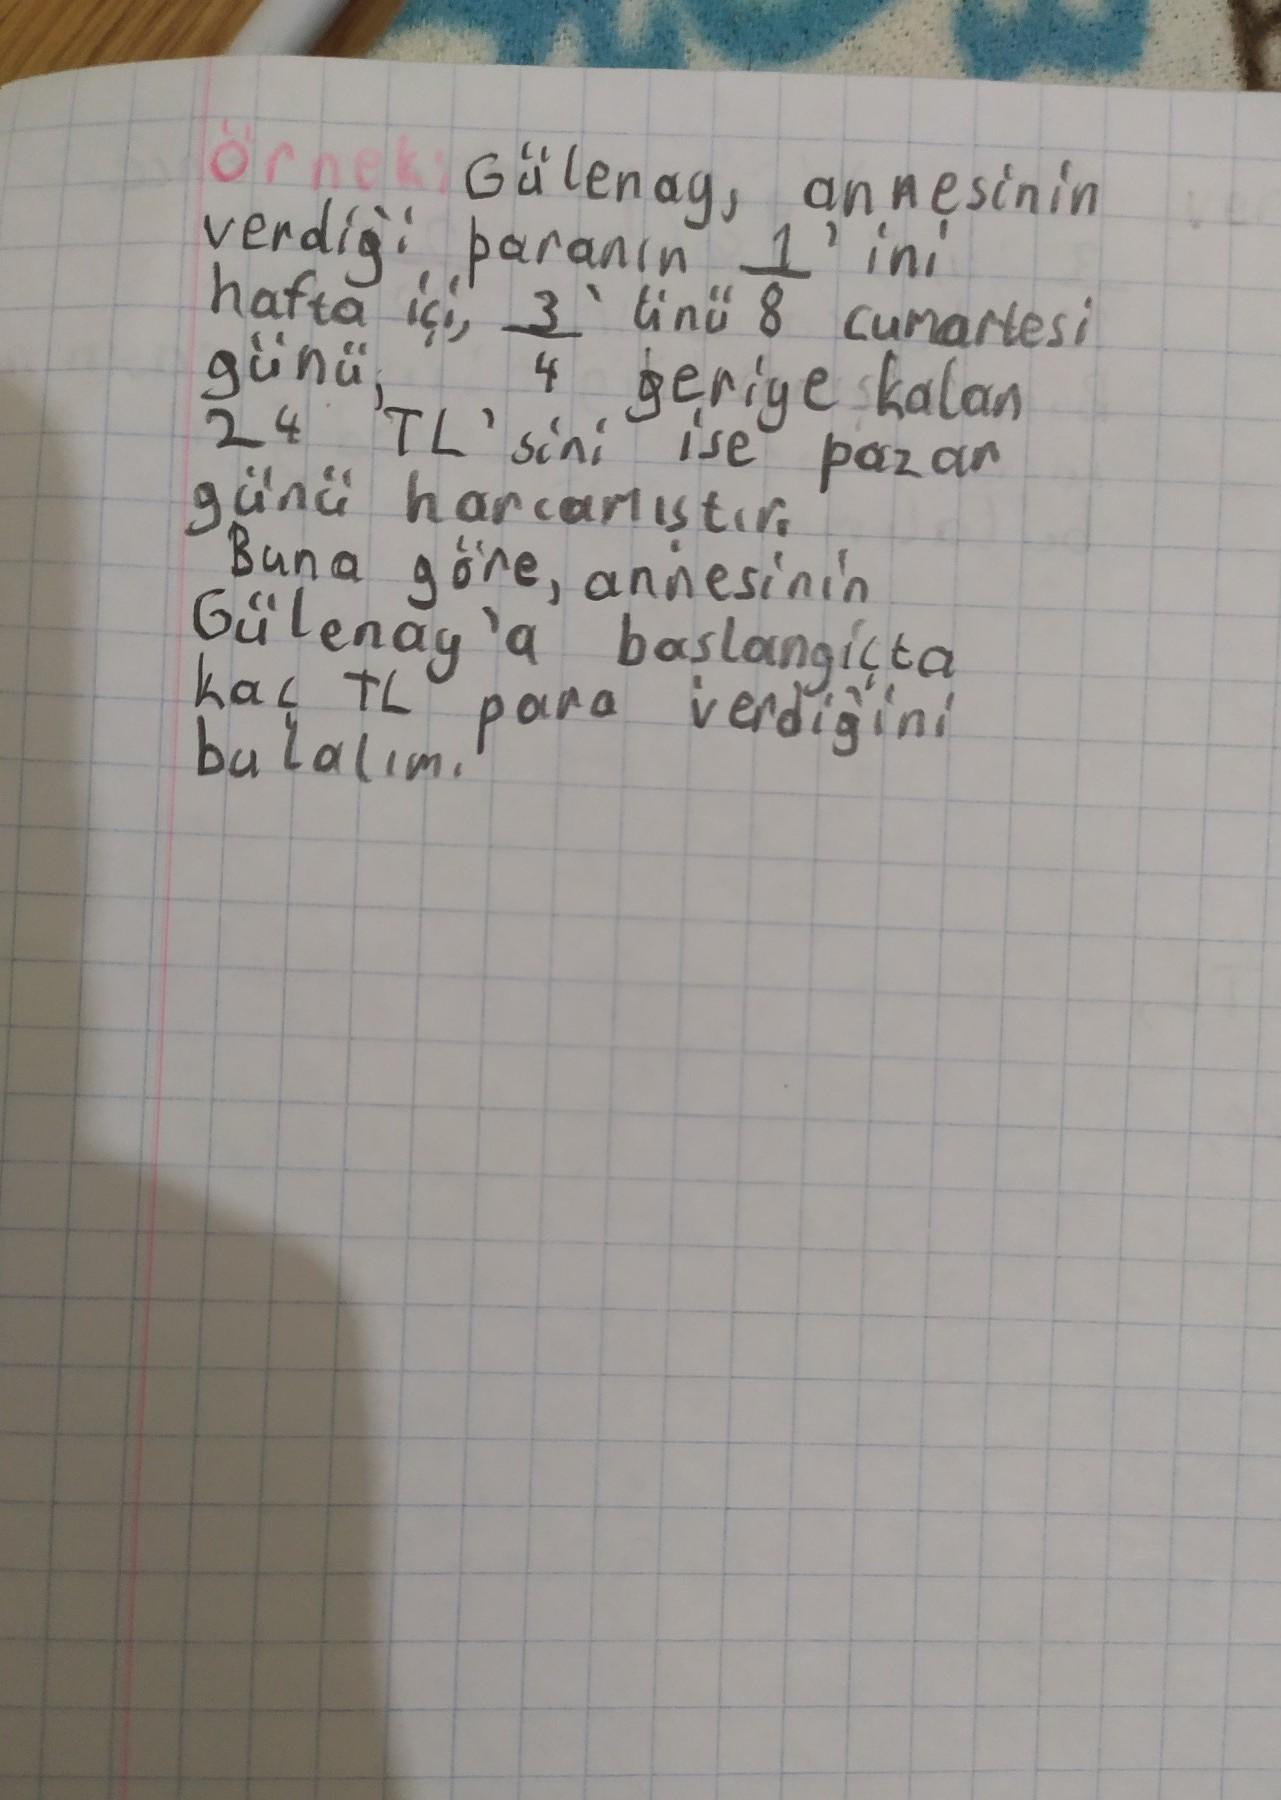 Örnek: Gülenay, annesinin
verdiği paranın 1/8'ini
hafta içi, 3/4'ünü cumartesi
günü, geriye kalan
24 TL'sini ise pazar
günü harcamıştır.
Buna göre, annesinin
Gülenay'a baslangiçta
kaç TL para verdiğini
bulalım.